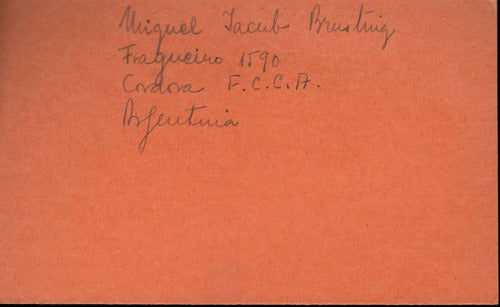 Miguel Jacub Brusting
Fragueiro 1590
Cordova F.C.C.A.
Argentinia